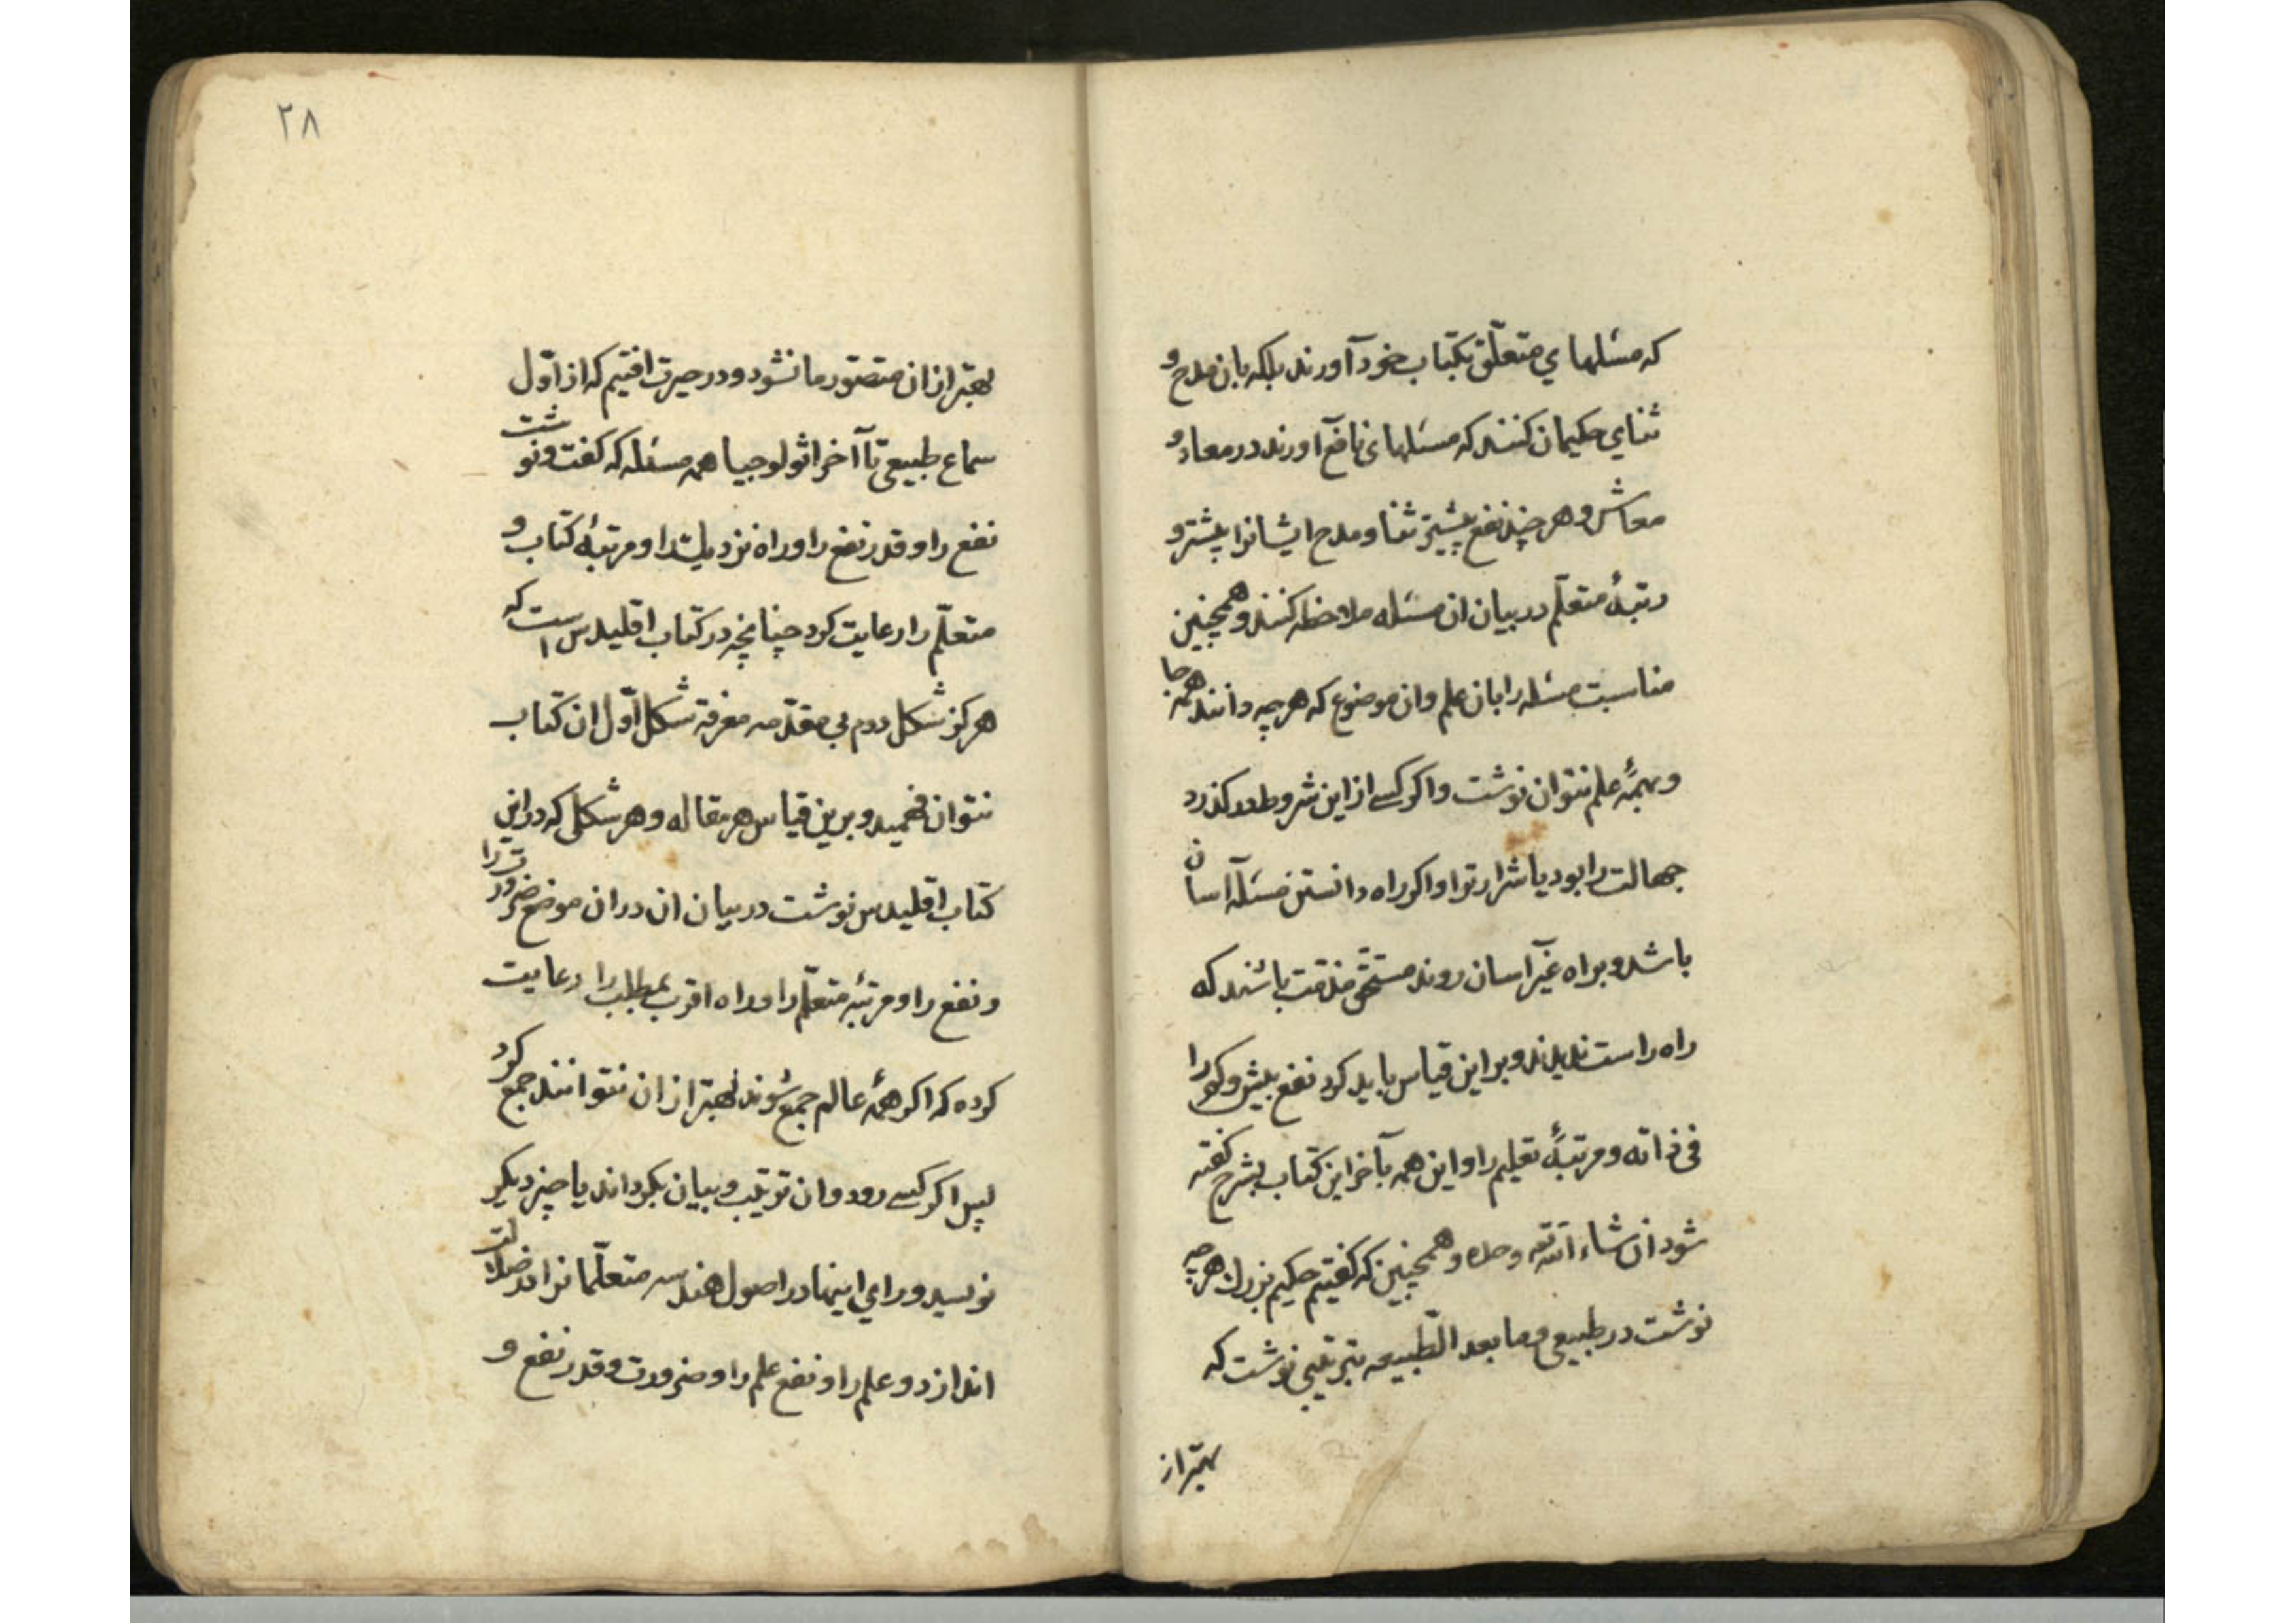 که مسئلهای متعلّق بکتاب خود آورند بلکه بان مدح و
ثنای حکیمان کنند که مسئلهای نافع آورند در معاد و
معاش و هر چند نفع بیشتر ثنا و مدح ایشانرا بیشتر و
رتبهٔ متعلّم در بیان ان مسئله ملاحظه کنند و همچنین
مناسبت مسئله را بان علم و ان موضوع که هر چه دانند همه جا
و بهمهٔ علم نتوان نوشت و اکر کسے از این شروط در کذرد
جهالت را بود یا شرارترا و اکر راه دانستن مسئله آسان
باشد و براه غیر آسان روند مستحق مذمت باشند که
راه راست ندیدند و بر این قیاس باید کرد نفع بیش و کم را
فی ذاته و مرتبهٔ تعلیم را و این همه بآخر این کتاب بشرح کفته
شود ان شاء الله وحده و همچنین که کفتیم حکیم بزرك هر چه
نوشت در طبیعی و ما بعد الطّبیعه بترتیبی نوشت که
بهتر از
۲۸
بهتر از ان متصّور ما نشود و در حیرت افتیم که از اوّل
سماع طبیعی تا آخر اثولوجیا همه مسئله که کفت و نوشت
نفع را و قدر نفع را و راه نزدیك را و مرتبهٔ کتاب و
متعلّم را رعایت کرد چنانچه در کتاب اقلیدس است که
هرکز شکل دوم بی مقدّمه معرفة شکل اوّل ان کتاب
نتوان فهمید و برین قیاس هر مقاله و هر شکلی که در این
کتاب اقلیدس نوشت در بیان ان در ان موضع ضرورت را
و نفع را و مرتبهٔ متعلّم را و راه اقرب بمطلب را رعایت
کرده که اکر همهٔ عالم جمع شوند بهتر از ان نتوانند جمع کرد
پس اکر کسے رود و ان ترتیب و بیان بکرداند یا چیز دیکر
نویسد ورای اینها در اصول هندسه متعلّمانرا در ضلالت
اندازد و علم را و نفع علم را و ضرورت و قدر نفع و